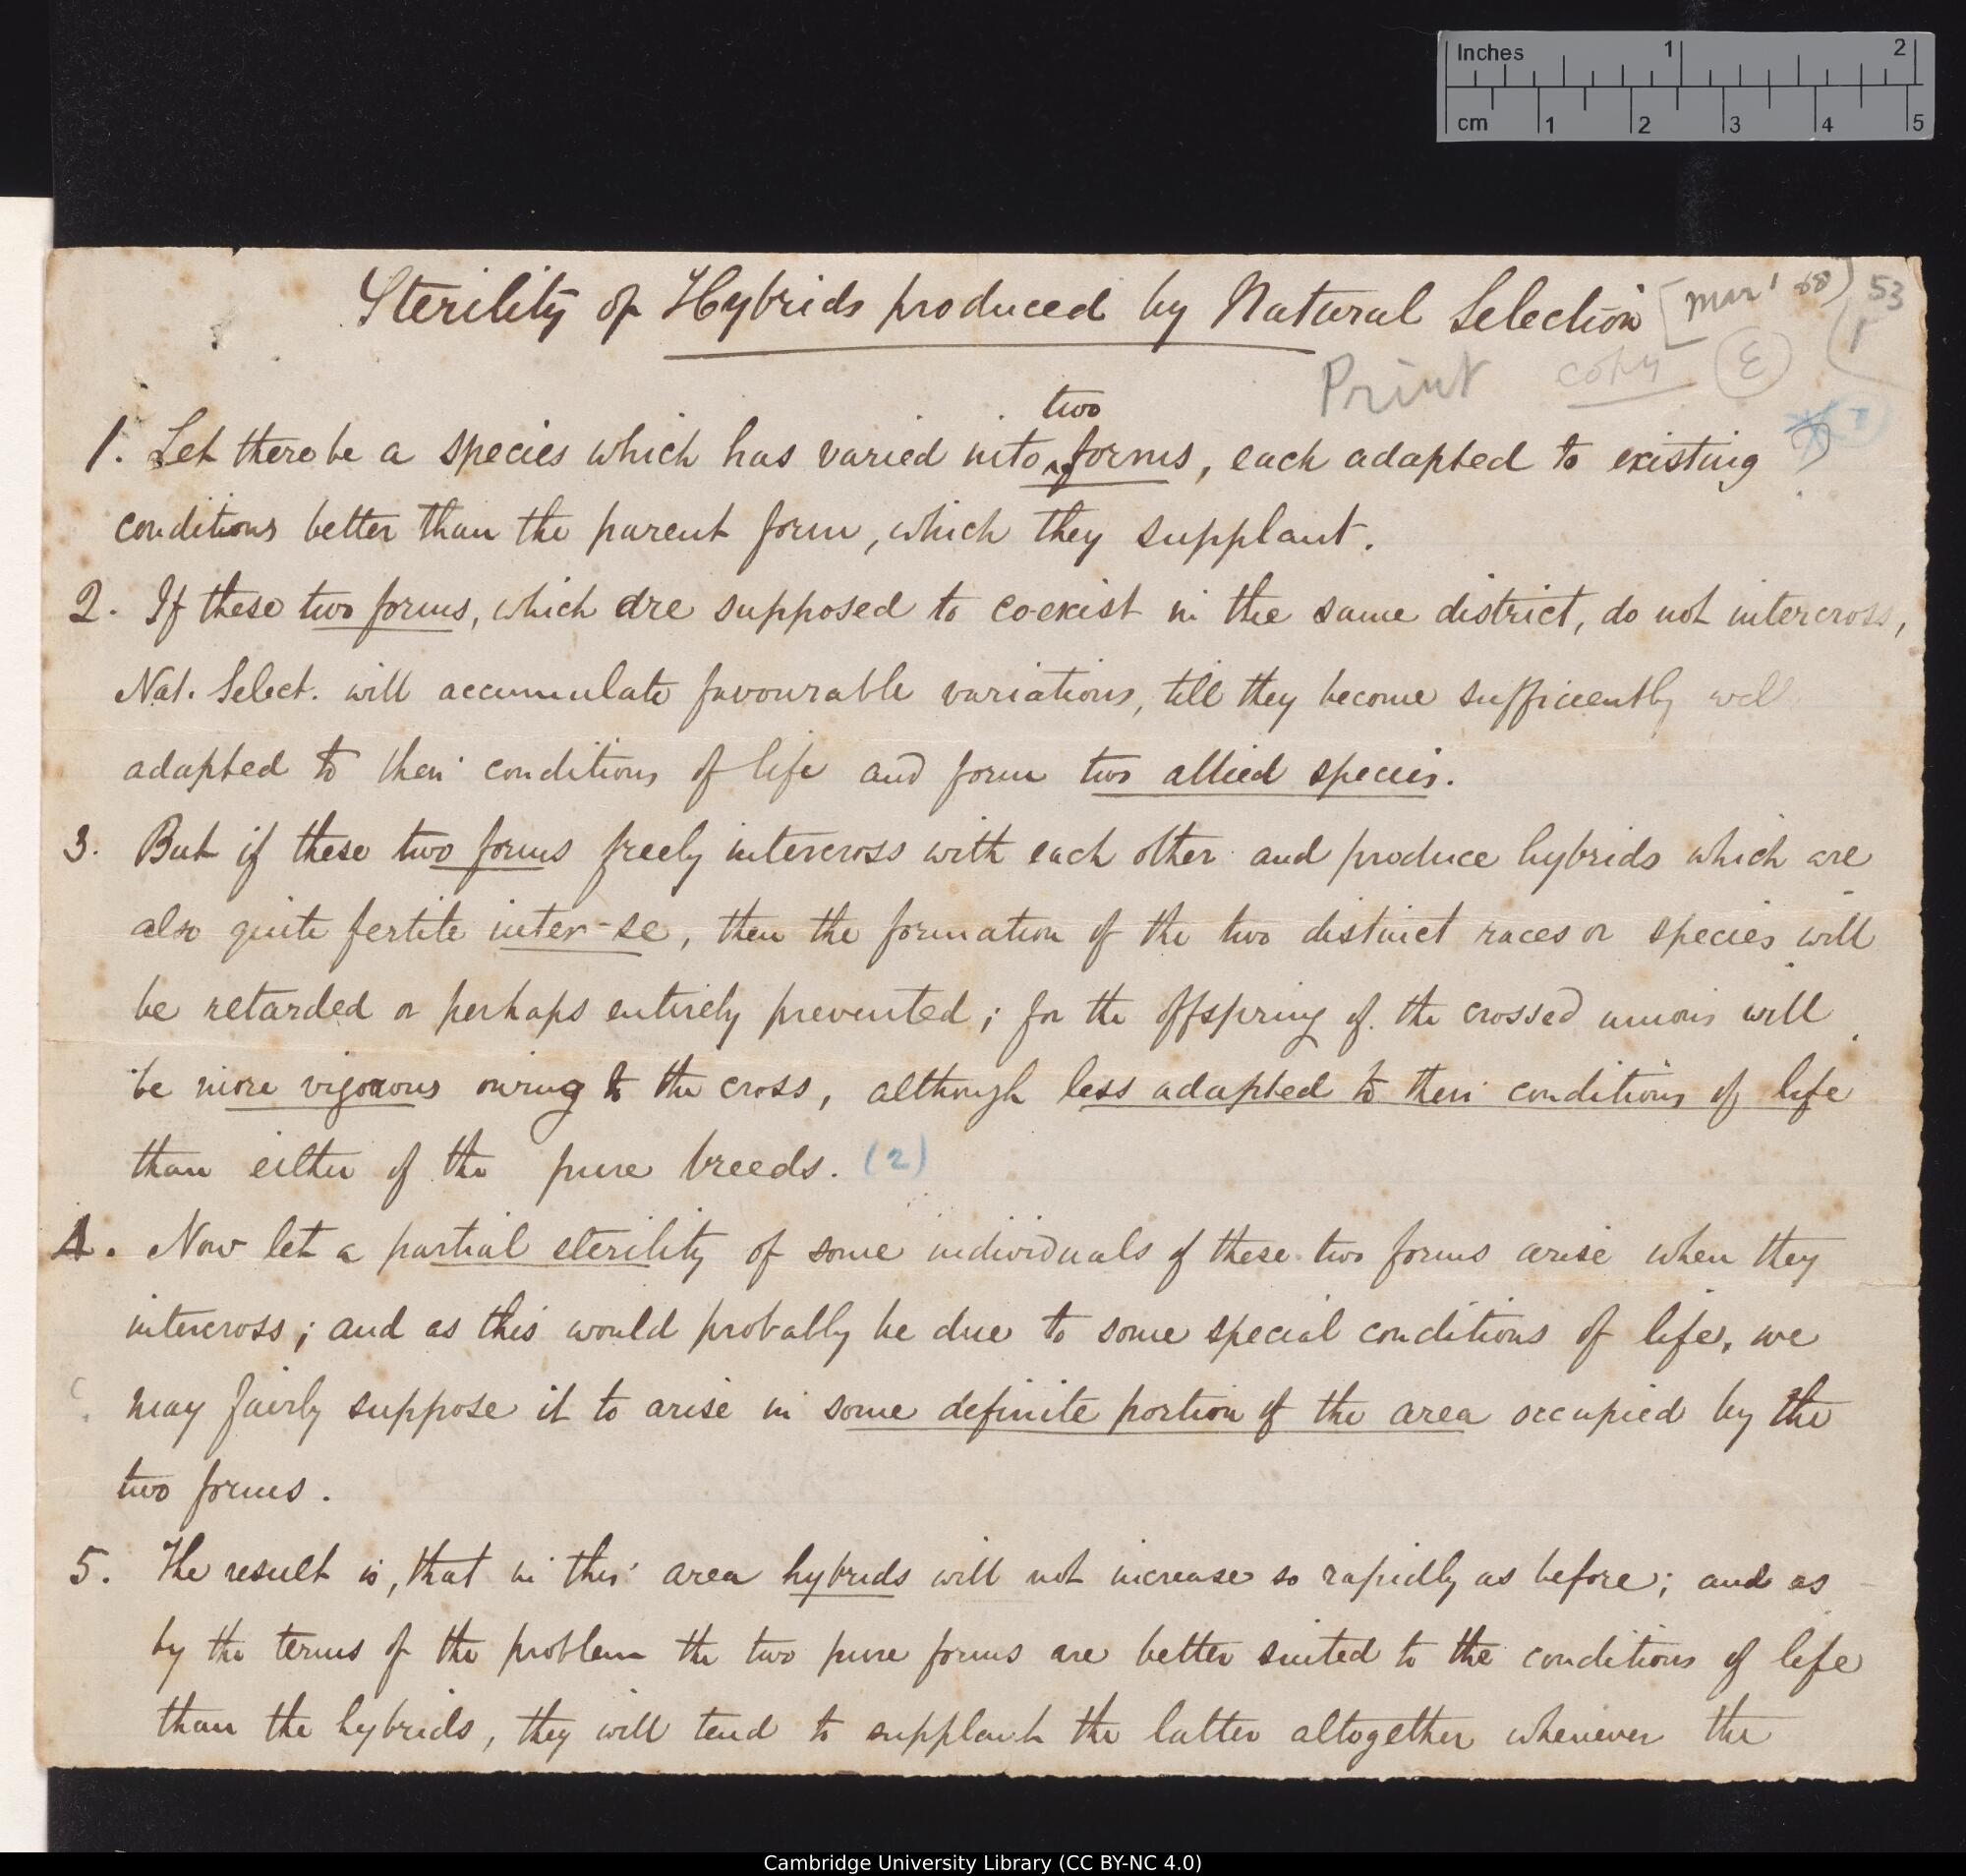 Inches 1 2
cm 1 2 3 4 5
Sterility of Hybrids produced by Natural Selection [Mar' 68) 53
Print copy E 1
two
1. Let there be a species which has varied into forms, each adapted to existing
conditions better than the parent form, which they supplant.
2. If these two forms, which are supposed to co-exist in the same district, do not intercross,
Nat. Select. will accumulate favourable variations, till they become sufficiently well
adapted to their conditions of life and form two allied species.
3. But if these two forms freely intercross with each other and produce hybrids which are
also quite fertile inter-se, then the formation of the two distinct races or species will
be retarded or perhaps entirely prevented; for the offspring of the crossed unions will
be more vigorous owing to the cross, although less adapted to their conditions of life
than either of the pure breeds. (2)
4. Now let a partial sterility of some individuals of these two forms arise when they
intercross; and as this would probably be due to some special conditions of life, we
may fairly suppose it to arise in some definite portion of the area occupied by the
two forms.
5. The result is, that in this area hybrids will not increase so rapidly as before; and as
by the terms of the problem the two pure forms are better suited to the conditions of life
than the hybrids, they will tend to supplant the latter altogether whenever the
Cambridge University Library (CC BY-NC 4.0)